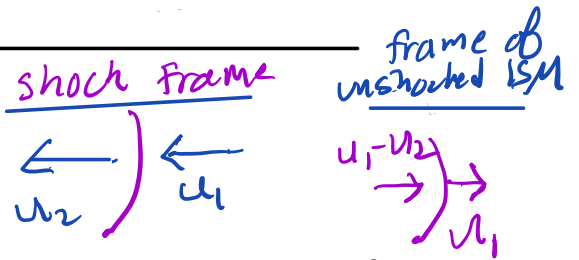 shock frame
u₂
u₁
frame of
unshocked ISM
u₁-u₂
u₁